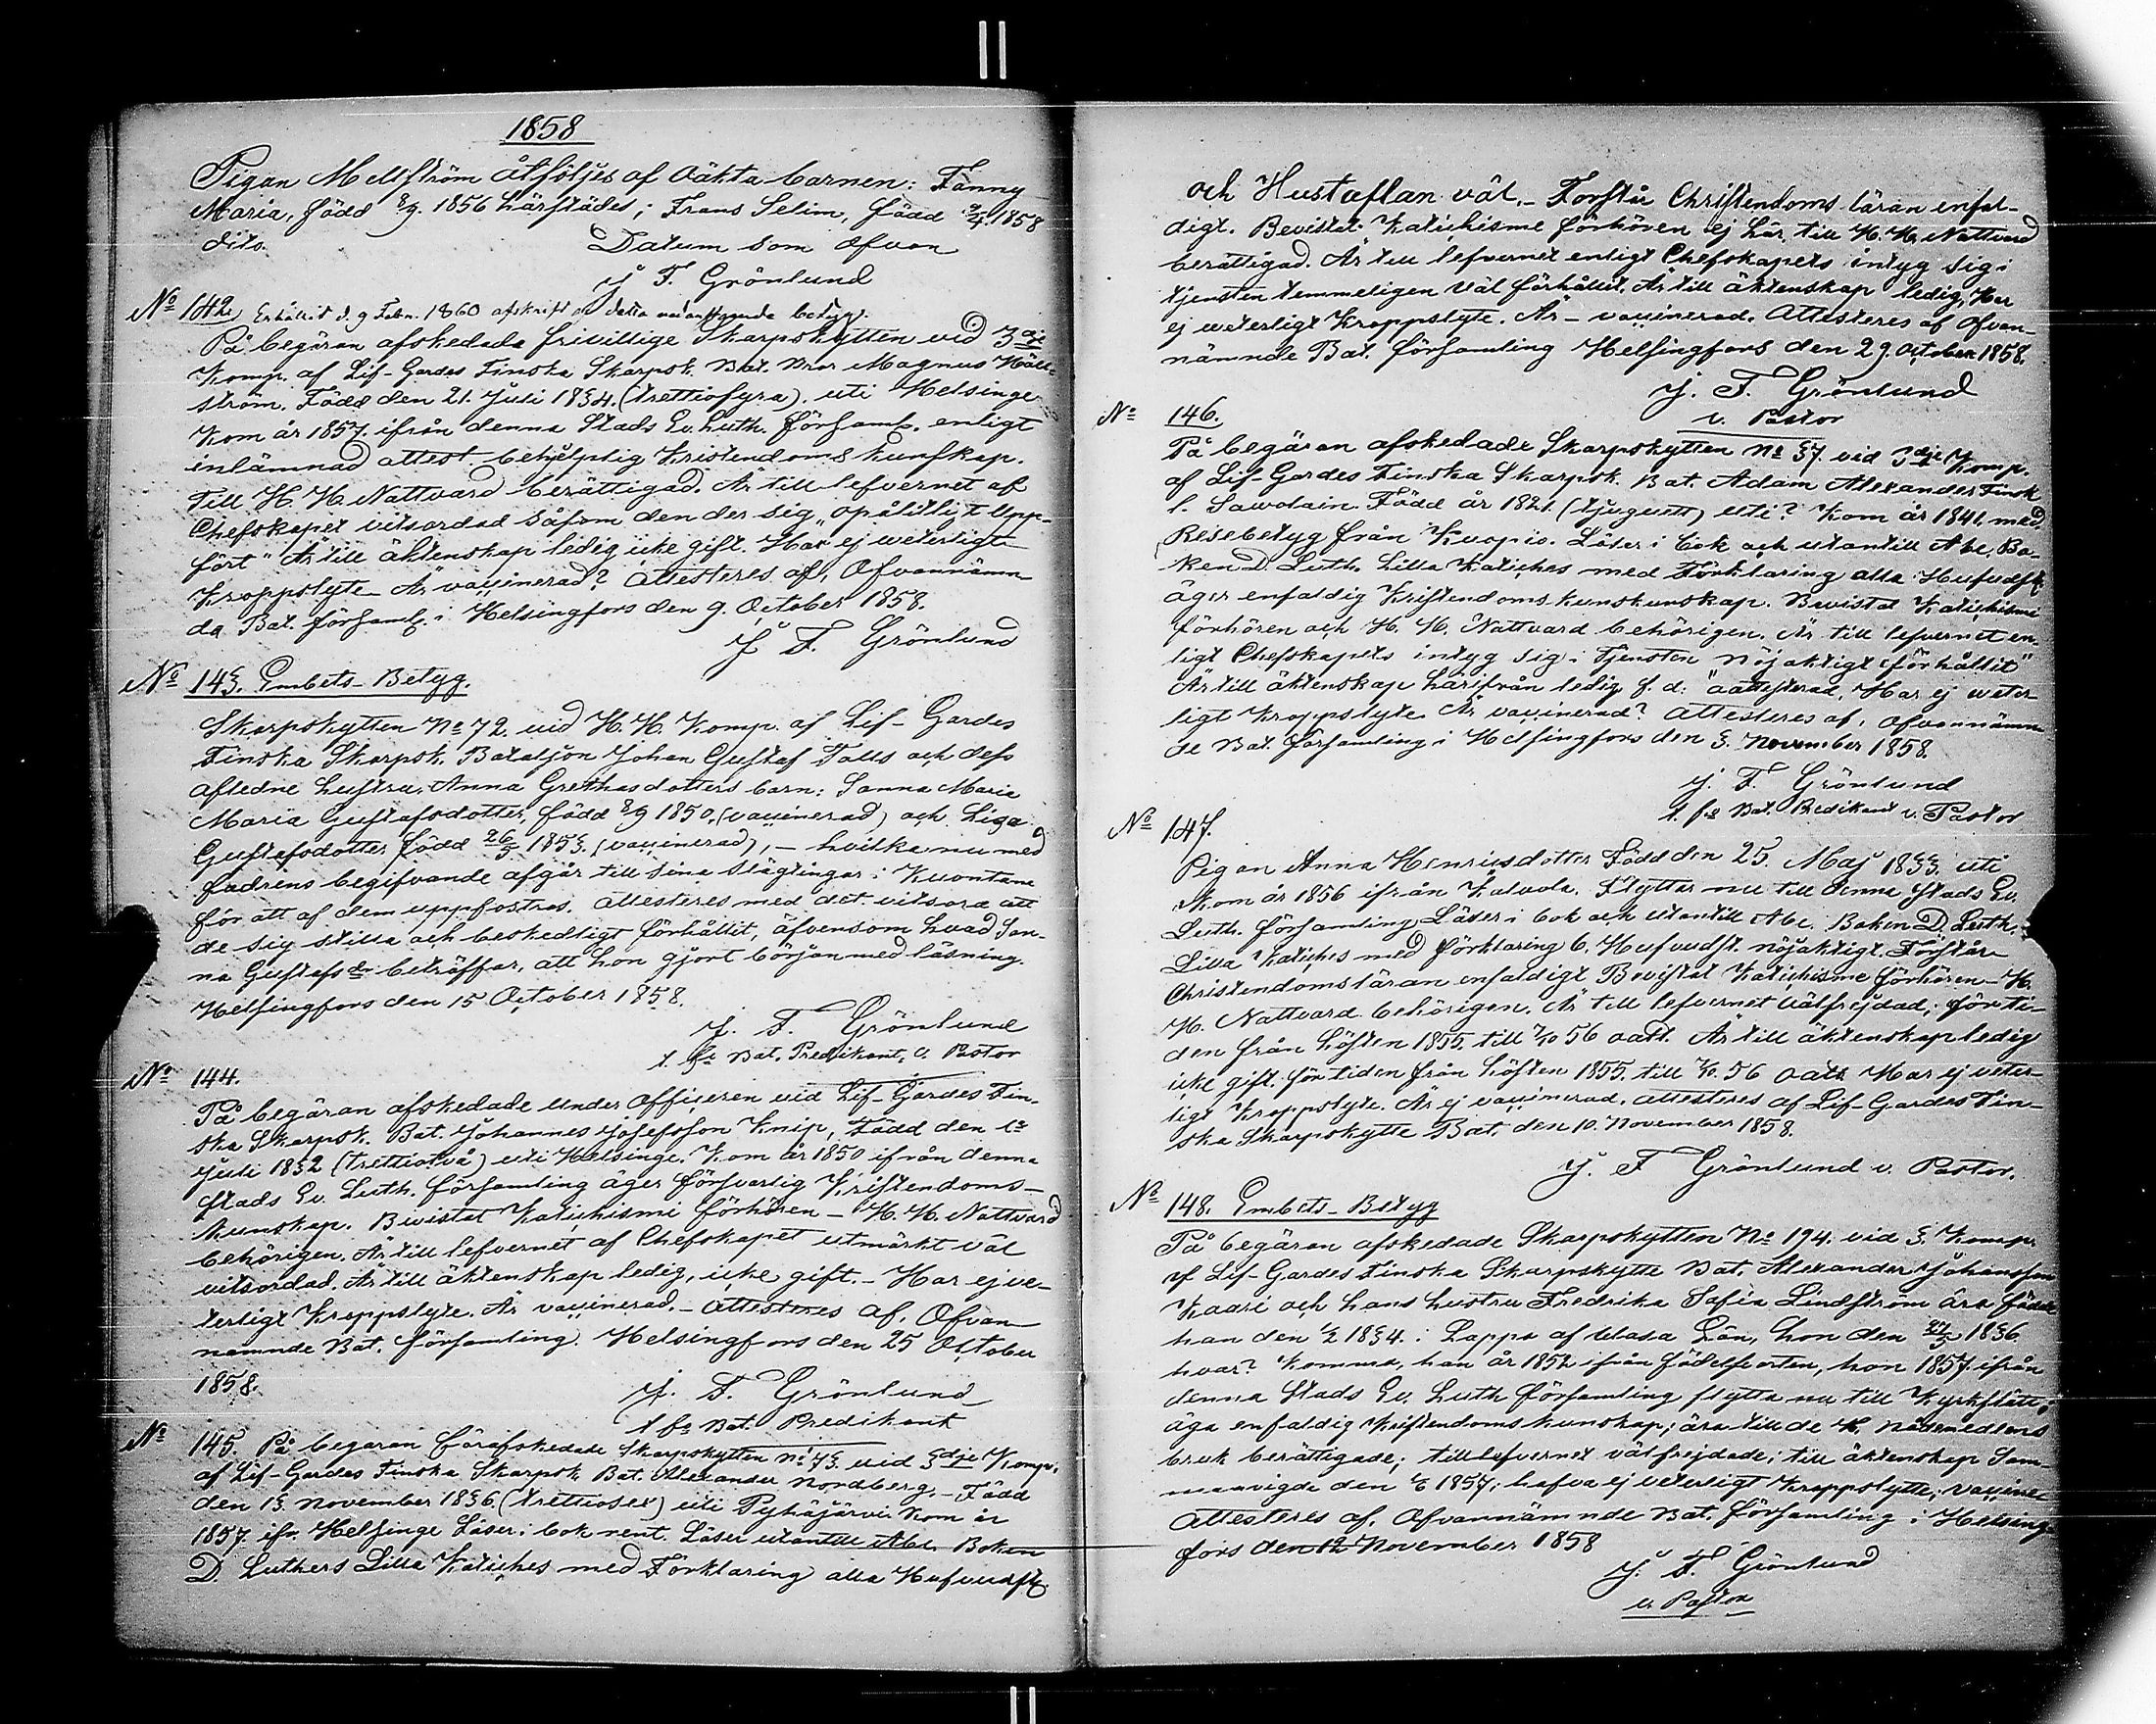 1858
Pigan Mellström åtföljes af oäkta barnen: Fanny
Maria, född 8/9. 1856 härstädes; Frans Selim, född 9/4. 1858
dito. Datum som ofvan
J. F. Grönlund
No 142. Erhållit d. 9 Febr. 1860 afskrift a detta betyg.
På begäran afskedade frivillige Skarpskytten vid 3dje
Komp. af Lif-Gardes Finska Skarpsk. Bat. Magnus Häll-
ström. Född den 21. Juli 1834. (trettiofyra). uti Helsinge
Kom år 1857. ifrån denna Stads Ev. Luth. församl. enligt
inlämnad attest. behjelplig Kristendoms kunskap.
Till H. H. Nattvard berättigad. Är till lefvernet af
Chefskapet vitsordad såsom den der sig „opålitligt upp-
fört" Är till äktenskap ledig icke gift. Har ej weterligt
Kroppslyte. Är vaccinerad? Attesteres af, Ofvannämn-
da Bat. församl. i Helsingfors den 9. October 1858.
J. F. Grönlund
No 143. Embets-Betyg.
Skarpskytten No 72. vid H. H. Komp. af Lif-Gardes
Finska Skarpsk. Bataljon Johan Gustaf Falls och dess
aflidne hustru, Anna Grethasdotters barn: Sanna Maria
Maria Gustafsdotter, född 8/9 1850. (vaccinerad) och Lisa
Gustafsdotter, född 26/5 1853. (vaccinerad), – hvilka nu med
fadrens begifvande afgår till sina slägtingar i Kuortane
för att af dem uppfostras. Attesteres med det vitsord att
de sig stilla och beskedligt förhållit, äfvensom hvad San-
na Gustafsdr beträffar, att hon gjort början med läsning.
Helsingfors den 15 October 1858.
J. F. Grönlund
t. f. Bat. Predikant, v. Pastor
No 144.
På begäran afskedade Under officeren vid Lif-Gardes Fin-
ska Skarpsk. Bat. Johannes Josefsson Knip, Född den 1a
Juli 1832 (trettiotvå) uti Helsinge. Kom år 1850 ifrån denna
Stads Ev. Luth. församling äger försvarlig Kristendoms-
kunskap. Bevistat Katichismi förhören – H. H. Nattvard
behörigen. Är till lefvernet af Chefskapet utmärkt väl
vitsordad. Är till äktenskap ledig, icke gift. – Har ej ve-
terligt Kroppslyte. Är vaccinerad. – Attesteres af, Ofvan-
nämnde Bat. församling. Helsingfors den 25 October
1858.
J. F. Grönlund
t. f. Bat. Predikant
No 145. På begäran förafskedade Skarpskytten No 73. vid 3dje Komp.
af Lif-Gardes Finska Skarpsk. Bat. Alexander Nordberg. – Född
den 13 November 1836 (trettiosex) uti Pyhäjärvi. Kom år
1857. ifr. Helsinge Läser i bok rent. Läser utantill Abc. Boken
D. Luthers Lilla Katiches med Förklaring alla Hufvudst.
och Hustaflan väl. – Forstår Christendoms läran enfal-
digt. Bevistat Katichisme förhören ej här. till H. H. Nattvard
berättigad. Är till lefvernet enligt Chefskapets intyg sig i
tjensten temmeligen Väl förhållit. Är till äktenskap ledig, Har
ej weterligt Kroppslyte. Är – vaccinerad. Attesteres af Ofvan-
nämnde Bat. församling Helsingfors den 29. October 1858.
J. F. Grönlund
v. Pastor
No 146.
På begäran afskedade Skarpskytten No 37. vid 3dje Komp.
af Lif-Gardes Finska Skarpsk. Bat. Adam Alexander Finsk
l. Sawolain. Född år 1821. (tjuguett) uti? Kom år 1841. med
Resebetyg från Kuopio. Läser i bok och utantill Abc, Bo-
ken D. Luth. Lilla Katiches med Förklaring alla Hufvudst.
äger enfaldig Kristendomskunskunskap. Bevistat Katichismi
förhören och H. H. Nattvard behörigen. Är till lefvernet en-
ligt Chefskapets intyg sig i Tjensten „nöjaktigt förhållit"
Är till äktenskap härifrån ledig f. d: oattesterad. Har ej weter-
ligt Kroppslyte. Är vaccinerad? Attesteres af, Ofvannämn
de Bat. församling i Helsingfors den 3. November 1858.
J. F. Grönlund
t. f. Bat. Predikant v. Pastor
No 147.
Pigan Anna Henricsdotter Född den 25. Maj 1833. uti
Kom år 1856 ifrån Kalvola. Flyttar nu till denna Stads Ev.
Luth. församling Läser i bok och utantill Abc. Boken D. Luth.
Lilla Katiches med förklaring 6. Hufvudst. nöjaktigt. Förstår
Christendomsläran enfaldigt Bevistat Katichisme förhören – H.
H. Nattvard behörigen. Är till lefvernet välfrejdad; för ti-
den från hösten 1855. till 7/10 56 oatt. Är till äktenskap ledig
icke gift. för tiden från hösten 1855. till 7/10. 56 oatt. Har ej veter-
ligt Kroppslyte. Är ej vaccinerad. Attesteres af Lif-Gardes Fin-
ska Skarpskytte Bat. den 10. November 1858.
J. F. Grönlund v. Pastor.
No 148. Embets-Betyg
På begäran afskedade Skarpskytten No 194. vid 3. Komp.
af Lif-Gardes Finska Skarpskytte Bat. Alexander Johansson
Kaari och hans hustru Fredrika Sofia Lindström äro födde
han den 1/2 1834. i Lappo af Wasa Län, hon den 27/3 1836
hvar? Komma, han år 1852 ifrån födelseorten, hon 1857. ifrån
denna Stads Ev. Luth församling flytta nu till Kyrkslätt;
äga enfaldig Kristendomskunskap; äro till de H. nådemedlens
bruk berättigade; till lefvernet välfrejdade; till äktenskap Sam-
manvigde den 1857; hafva ej veterligt kroppslytte; vaccine-
Attesteres af, Ofvannämnde Bat. församling i Helsing-
fors den 12 November 1858
J. F. Grönlund
v. Pastor